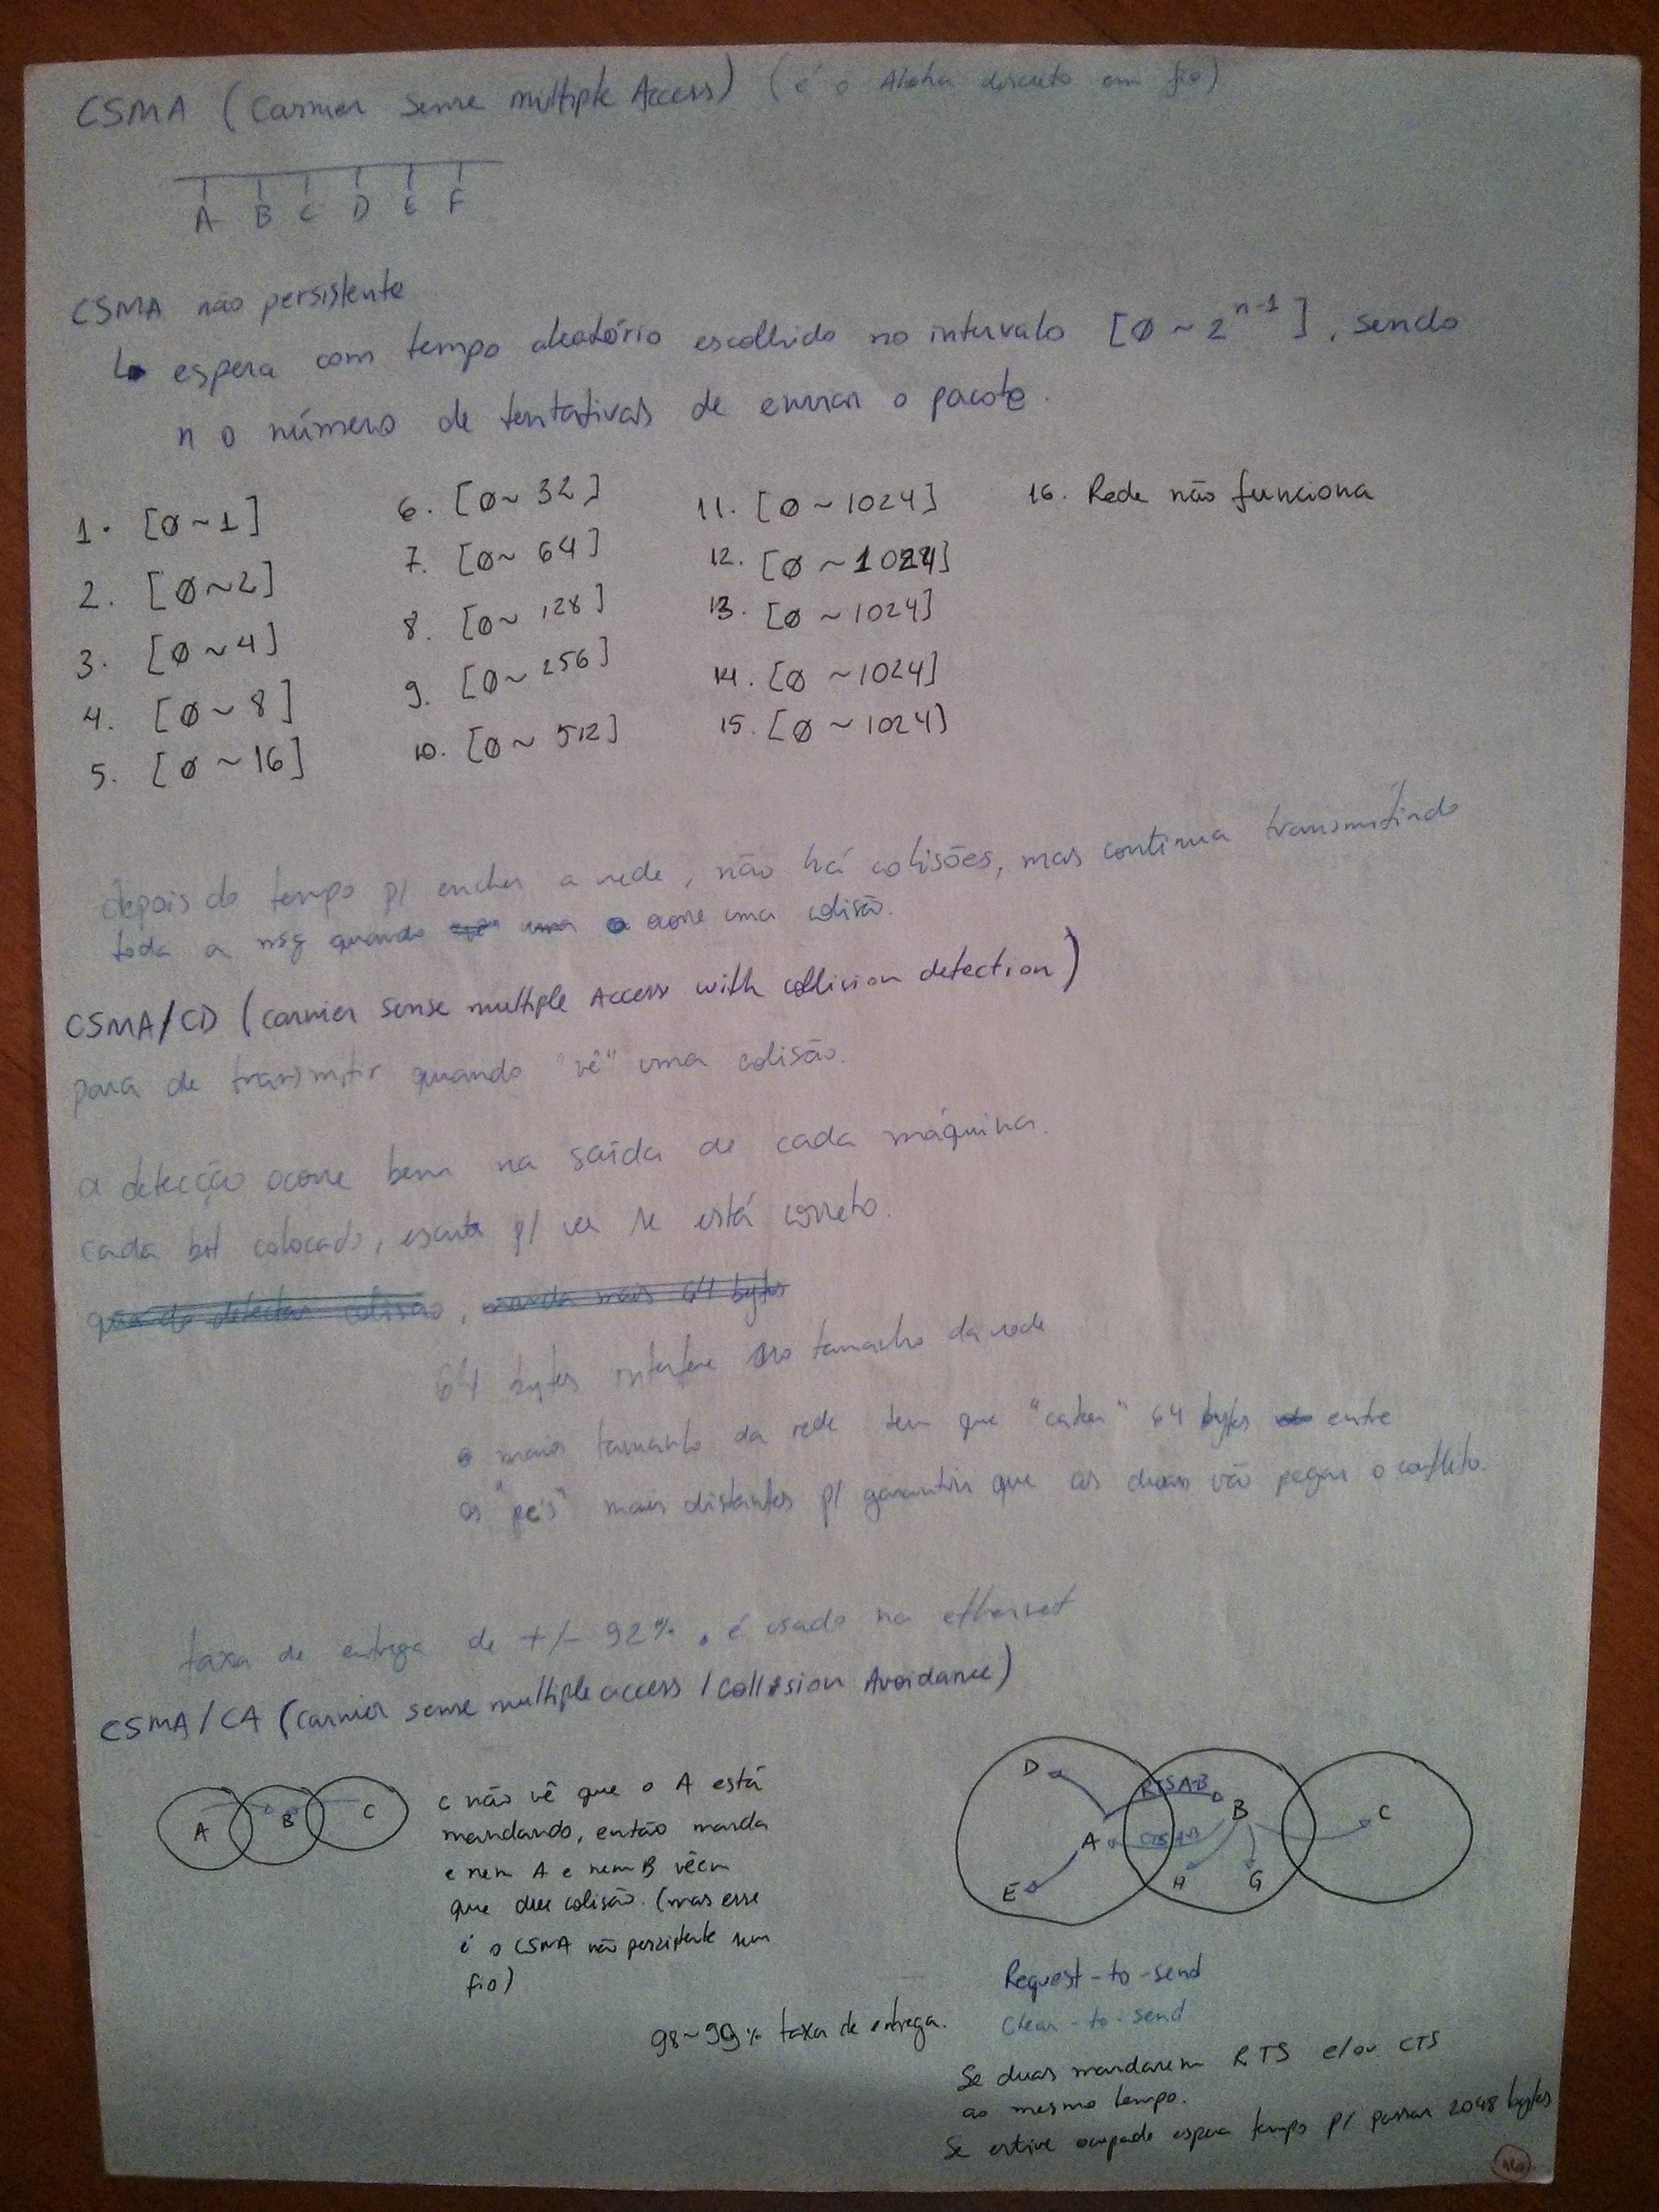 CSMA (Carrier Sense multiple Access) (é o Aloha discreto em fio)
A B C D E F
CSMA não persistente
↳ espera com tempo aleatório escolhido no intervalo [Ø ~ 2^n-1], sendo
n o número de tentativas de enviar o pacote.
1. [Ø ~ 1]
2. [Ø ~ 2]
3. [Ø ~ 4]
4. [Ø ~ 8]
5. [Ø ~ 16]
6. [Ø ~ 32]
7. [Ø ~ 64]
8. [Ø ~ 128]
9. [Ø ~ 256]
10. [Ø ~ 512]
11. [Ø ~ 1024]
12. [Ø ~ 1024]
13. [Ø ~ 1024]
14. [Ø ~ 1024]
15. [Ø ~ 1024]
16. Rede não funciona
depois do tempo p/ encher a rede, não há colisões, mas continua transmitindo
toda a msg quando ocorre uma colisão.
CSMA/CD (carrier sense multiple Access with collision detection)
para de transmitir quando "vê" uma colisão.
a detecção ocorre bem na saída de cada máquina.
cada bit colocado, escuta p/ ver se está correto.
quando detectar colisão, manda mais 64 bytes
64 bytes interfere no tamanho da rede
o maior tamanho da rede tem que "caber" 64 bytes entre
os "pc's" mais distantes p/ garantir que as duas vão pegar o conflito.
taxa de entrega de +/- 92%, é usado na ethernet
CSMA/CA (carrier sense multiple access / Collision Avoidance)
A B C
C não vê que o A está
mandando, então manda
e nem A e nem B vêem
que deu colisão. (mas esse
é o CSMA não persistente sem
fio)
98~99% taxa de entrega.
D RTS A-B
B C
A CTS A-B
E H G
Request-to-send
Clear-to-send
Se duas mandarem RTS e/ou CTS
ao mesmo tempo.
Se estive ocupado espera tempo p/ passar 2048 bytes